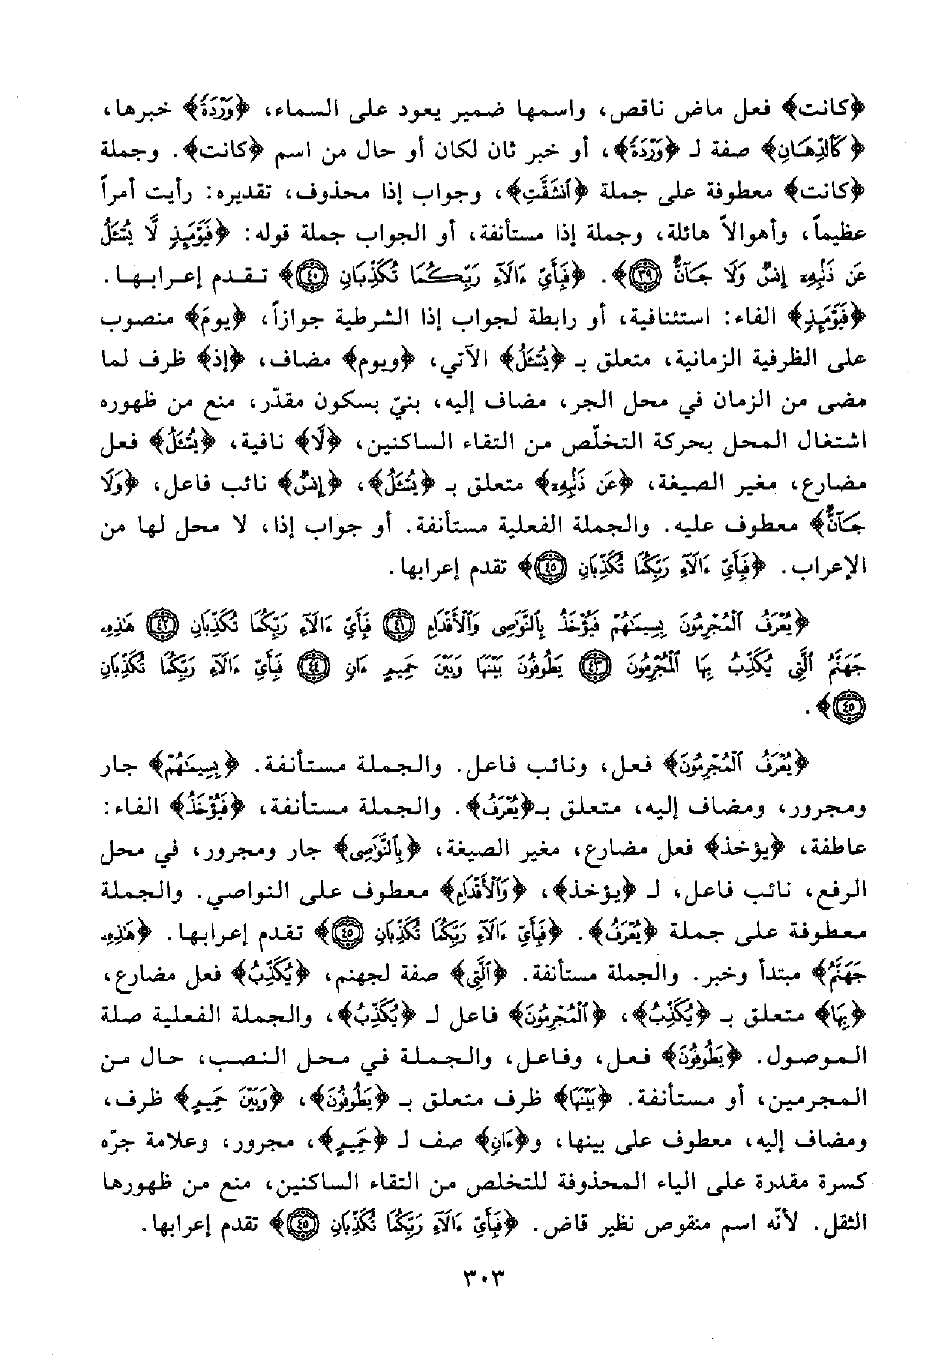 ﴿كانت﴾ فعل ماض ناقص، واسمها ضمير يعود على السماء، ﴿وَرْدَةً﴾ خبرها،
﴿كَالدِّهَانِ﴾ صفة لـ ﴿وَرْدَةً﴾، أو خبر ثان لكان أو حال من اسم ﴿كانت﴾. وجملة
﴿كانت﴾ معطوفة على جملة ﴿انْشَقَّتِ﴾، وجواب إذا محذوف، تقديره: رأيت أمراً
عظيماً، وأهوالاً هائلة، وجملة إذا مستأنفة، أو الجواب جملة قوله: ﴿فَيَوْمَئِذٍ لَّا يُسْئَلُ
عَن ذَنۢبِهِۦٓ إِنسٌ وَلَا جَآنٌّ ﴿٣٩﴾﴾. ﴿فَبِأَيِّ ءَالَآءِ رَبِّكُمَا تُكَذِّبَانِ ﴿٤٠﴾﴾ تقدم إعرابها.
﴿فَيَوْمَئِذٍ﴾ الفاء: استئنافية، أو رابطة لجواب إذا الشرطية جوازاً، ﴿يومَ﴾ منصوب
على الظرفية الزمانية، متعلق بـ ﴿يُسْئَلُ﴾ الآتي، ﴿ويوم﴾ مضاف، ﴿إذ﴾ ظرف لما
مضى من الزمان في محل الجر، مضاف إليه، بنيّ بسكون مقدّر، منع من ظهوره
اشتغال المحل بحركة التخلّص من التقاء الساكنين، ﴿لَا﴾ نافية، ﴿يُسْئَلُ﴾ فعل
مضارع، مغير الصيغة، ﴿عَن ذَنۢبِهِۦٓ﴾ متعلق بـ ﴿يُسْئَلُ﴾، ﴿إِنسٌ﴾ نائب فاعل، ﴿وَلَا
جَآنٌّ﴾ معطوف عليه. والجملة الفعلية مستأنفة. أو جواب إذا، لا محل لها من
الإعراب. ﴿فَبِأَيِّ ءَالَآءِ رَبِّكُمَا تُكَذِّبَانِ ﴿٤٥﴾﴾ تقدم إعرابها.
﴿يُعْرَفُ الْمُجْرِمُونَ بِسِيمَاهُمْ فَيُؤْخَذُ بِالنَّوَاصِي وَالْأَقْدَامِ ﴿٤١﴾ فَبِأَيِّ ءَالَآءِ رَبِّكُمَا تُكَذِّبَانِ ﴿٤٢﴾ هَذِهِ
جَهَنَّمُ الَّتِي يُكَذِّبُ بِهَا الْمُجْرِمُونَ ﴿٤٣﴾ يَطُوفُونَ بَيْنَهَا وَبَيْنَ حَمِيمٍ ءَانٍ ﴿٤٤﴾ فَبِأَيِّ ءَالَآءِ رَبِّكُمَا تُكَذِّبَانِ
﴿٤٥﴾﴾.
﴿يُعْرَفُ الْمُجْرِمُونَ﴾ فعل، ونائب فاعل. والجملة مستأنفة. ﴿بِسِيمَاهُمْ﴾ جار
ومجرور، ومضاف إليه، متعلق بـ﴿يُعْرَفُ﴾. والجملة مستأنفة، ﴿فَيُؤْخَذُ﴾ الفاء:
عاطفة، ﴿يؤخذ﴾ فعل مضارع، مغير الصيغة، ﴿بِالنَّوَاصِي﴾ جار ومجرور، في محل
الرفع، نائب فاعل، لـ ﴿يؤخذ﴾، ﴿وَالْأَقْدَامِ﴾ معطوف على النواصي. والجملة
معطوفة على جملة ﴿يُعْرَفُ﴾. ﴿فَبِأَيِّ ءَالَآءِ رَبِّكُمَا تُكَذِّبَانِ ﴿٤٥﴾﴾ تقدم إعرابها. ﴿هَذِهِ
جَهَنَّمُ﴾ مبتدأ وخبر. والجملة مستأنفة. ﴿الَّتِي﴾ صفة لجهنم، ﴿يُكَذِّبُ﴾ فعل مضارع،
﴿بِهَا﴾ متعلق بـ ﴿يُكَذِّبُ﴾، ﴿الْمُجْرِمُونَ﴾ فاعل لـ ﴿يُكَذِّبُ﴾، والجملة الفعلية صلة
الموصول. ﴿يَطُوفُونَ﴾ فعل، وفاعل، والجملة في محل النصب، حال من
المجرمين، أو مستأنفة. ﴿بَيْنَهَا﴾ ظرف متعلق بـ ﴿يَطُوفُونَ﴾، ﴿وَبَيْنَ حَمِيمٍ﴾ ظرف،
ومضاف إليه، معطوف على بينها، و﴿ءَانٍ﴾ صف لـ ﴿حَمِيمٍ﴾، مجرور، وعلامة جرّه
كسرة مقدرة على الياء المحذوفة للتخلص من التقاء الساكنين، منع من ظهورها
الثقل. لأنّه اسم منقوص نظير قاض. ﴿فَبِأَيِّ ءَالَآءِ رَبِّكُمَا تُكَذِّبَانِ ﴿٤٥﴾﴾ تقدم إعرابها.
٣٠٣